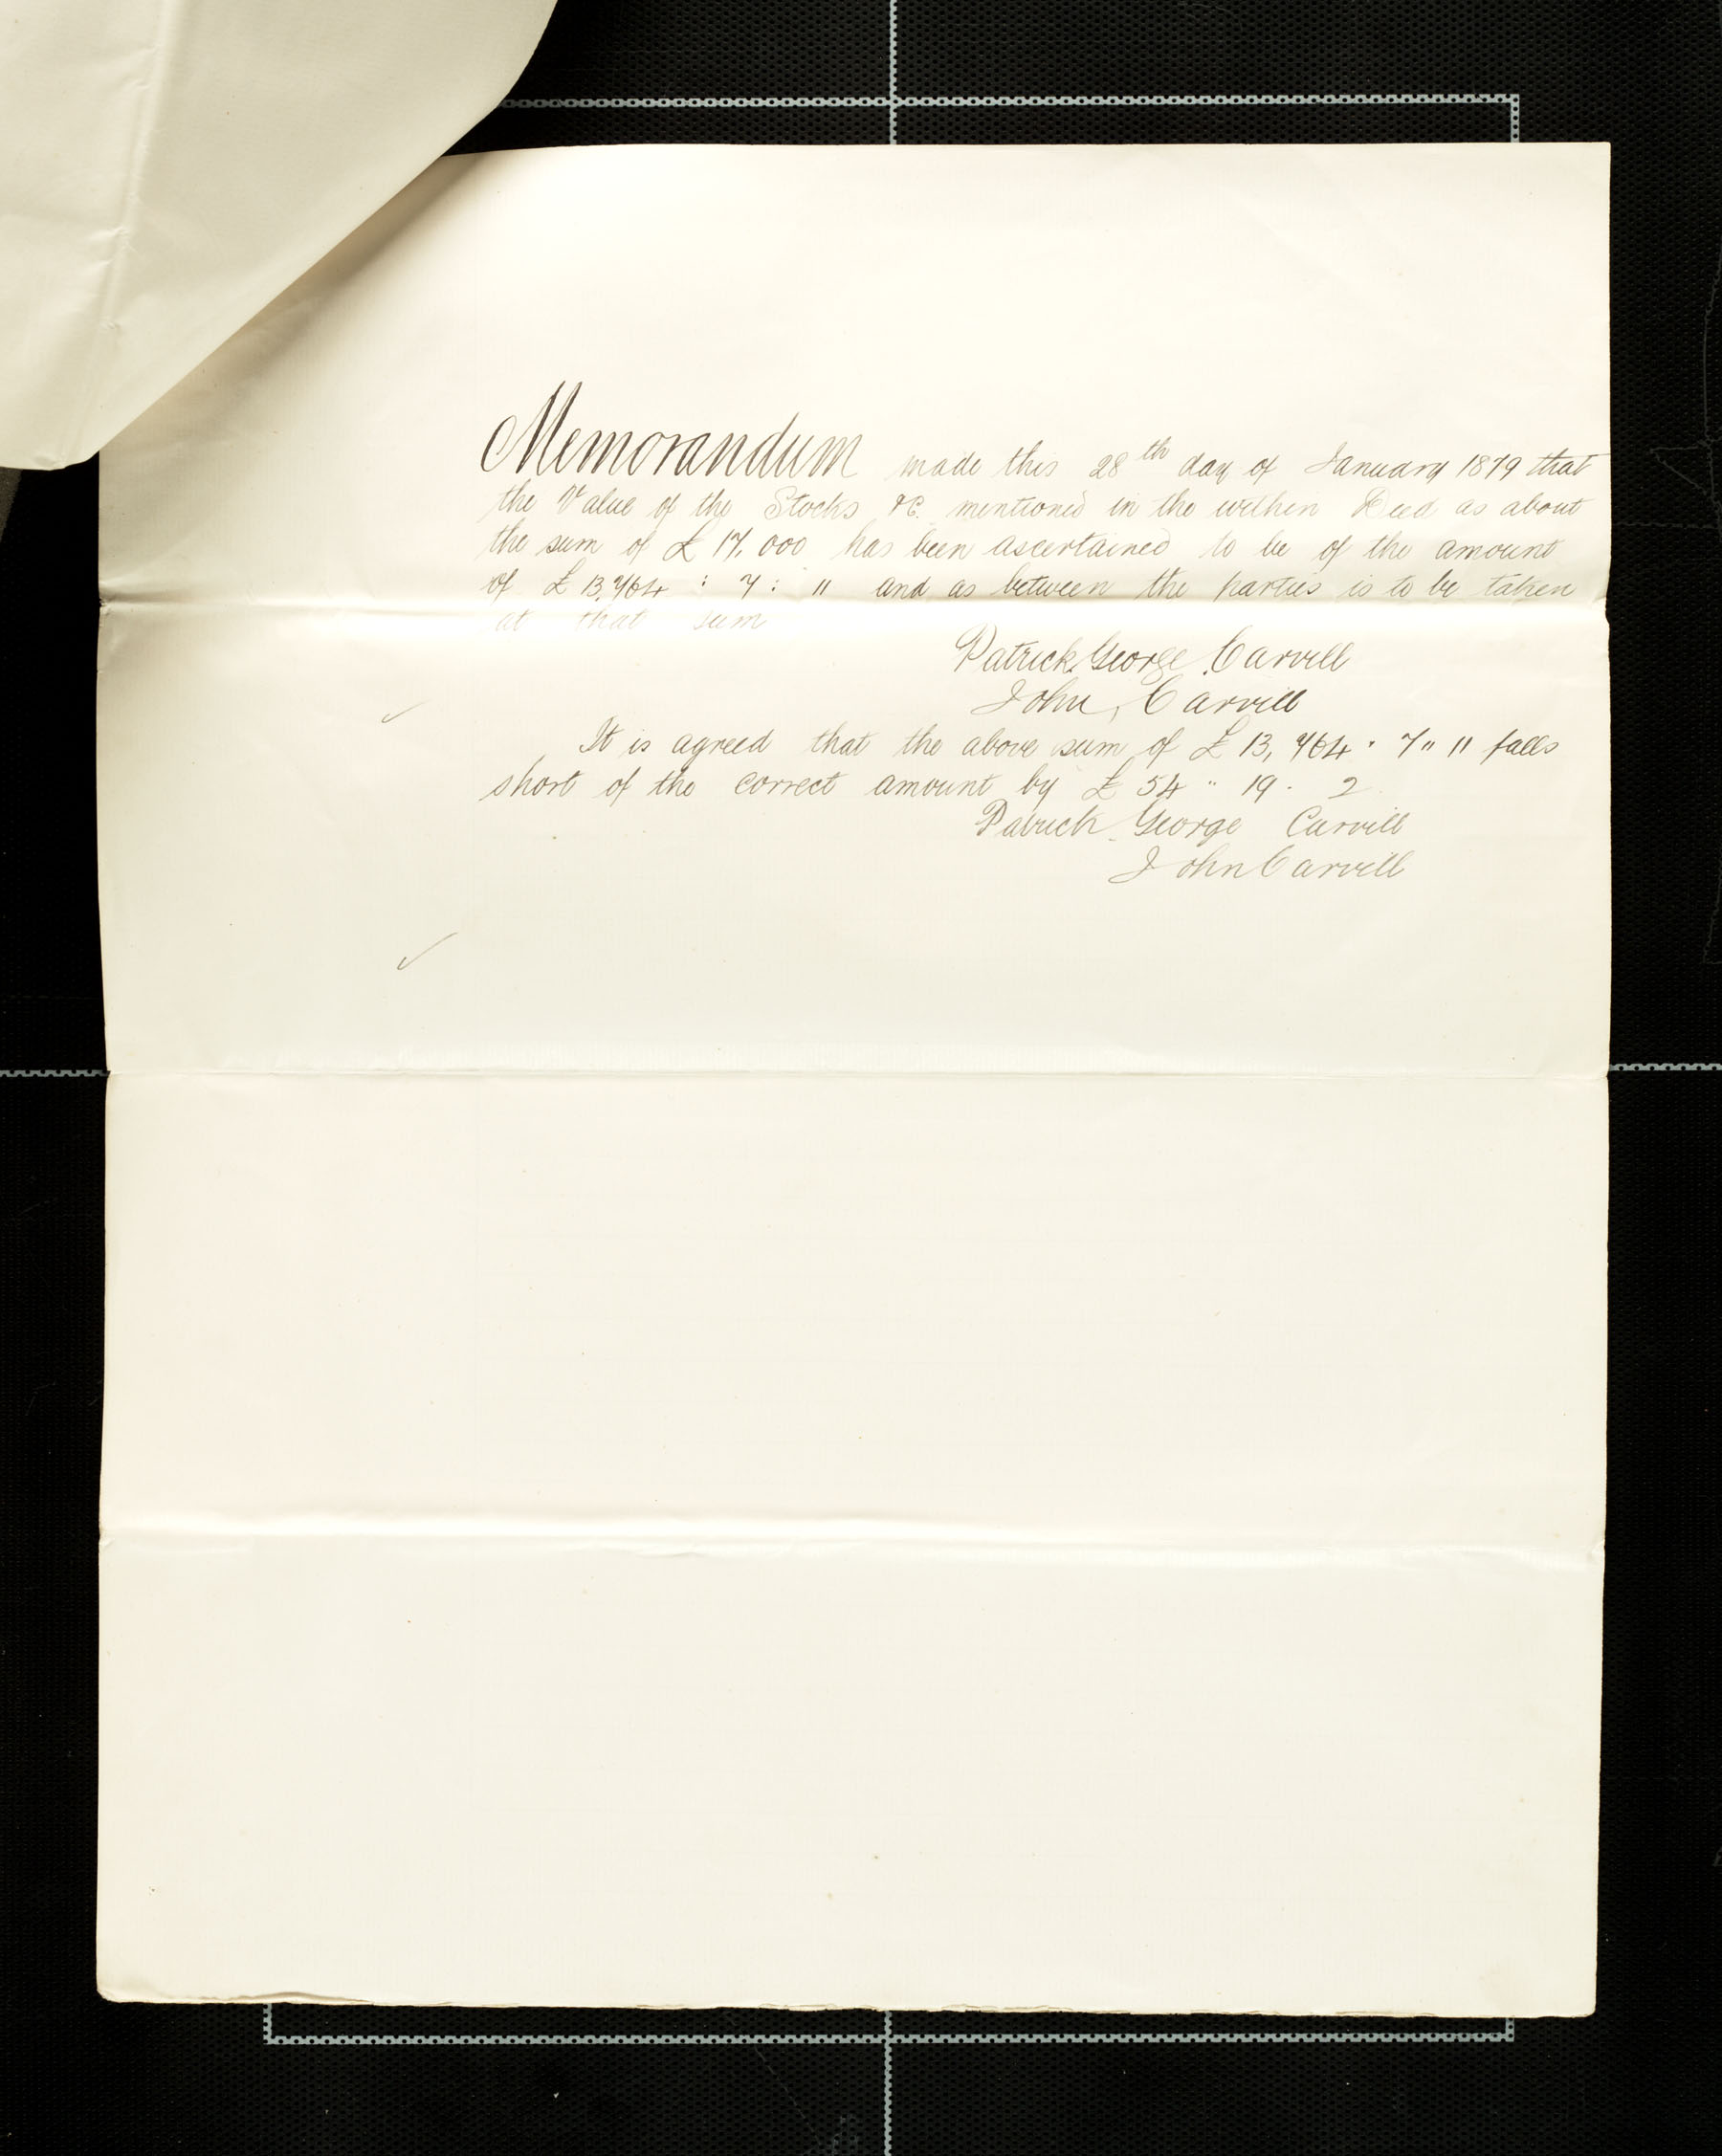 Memorandum made this 28th day of January 1879 that
the Value of the Stocks &c. mentioned in the within Deed as about
the sum of £17,000 has been ascertained to be of the amount
of £13,764 : 7 : " and as between the parties is to be taken
at that sum
Patrick George Carvill
John Carvill
It is agreed that the above sum of £13,764 " 7 " " falls
short of the correct amount by £54 " 19 . 2
Patrick George Carvill
John Carvill